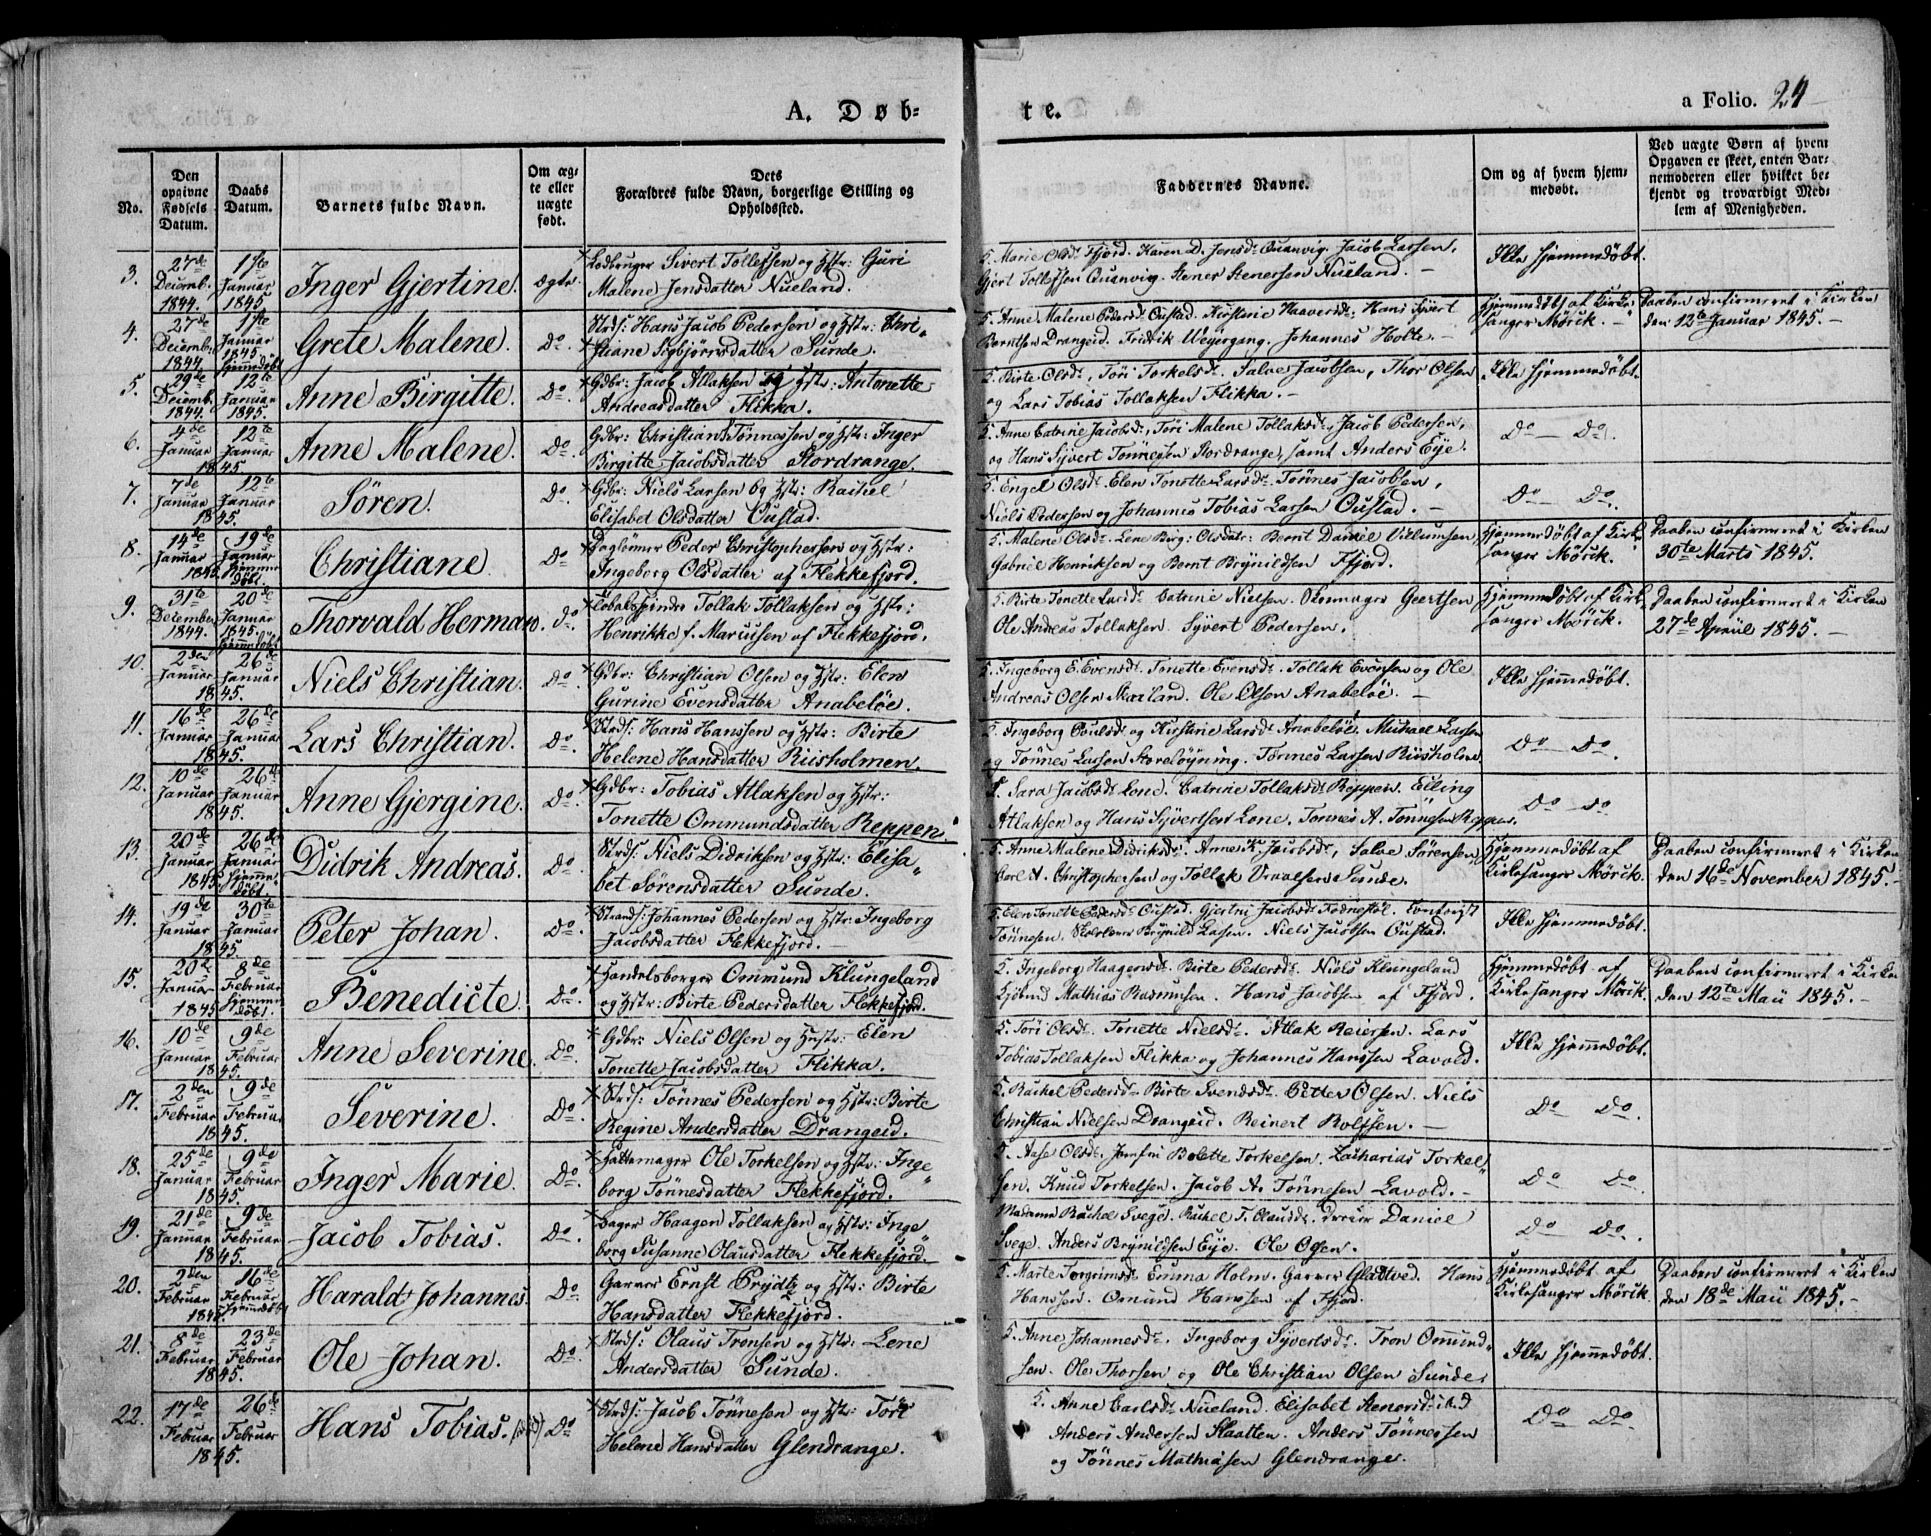 A. Døb-
te.
a Folio. 24
No.
Den opgivne Fødsels Datum.
Daabs Datum.
Barnets fulde Navn.
Om ægte eller uægte født.
Dets
Forældres fulde Navn, borgerlige Stilling og
Opholdssted.
Faddernes Navne.
Om og af hvem hjemmedøbt.
Ved uægte Børn af hvem
Opgaven er skeet, enten Bar-
nemoderen eller hvilket be-
kjendt og troværdigt Med-
lem af Menigheden.
3. 27de Decemb. 1844. 1ste Januar 1845 Inger Gjertine. Ægte. Sivert Tollefsen og Hstr: Guri
Malene Jensdatter Nueland.
5. Marie Olsdr Fjord. Karen D. Jensdr Quanvig. Jacob Larsen,
Gjert Tollefsen Quanvig. Stener Stenersen Nueland. –
Ikke hjemmedøbt.
4. 27de Decemb. 1844. 1ste Januar 1845 hjemmedøbt Grete Malene. Do. Strds: Hans Jacob Pedersen og Hstr: Chri-
stiane Sigbjørnsdatter Sunde.
5. Anne Malene Pedersdr Oustad. Kirstine Haaversdr. Hans Syvert
Berntsen Drangeid. Fridrik Weyergang. Johannes Holte. –
Hjemmedøbt af Kirke-
sanger Mørck. –
Daaben confirmeret i Kirken
den 12te Januar 1845. –
5. 29de Decemb. 1844. 12te Januar 1845. Anne Birgitte. Do. Gdbr: Jacob Atlaksen og Hstr: Antonette
Andreasdatter Flikka.
5. Birte Olsdr, Tori Torkelsdr. Salve Jacobsen, Thor Olsen
og Lars Tobias Tollaksen Flikka. –
Ikke hjemmedøbt.
6. 4de Januar 1845. 12te Januar Anne Malene. Do. Gdbr: Christian Tønnessen og Hstr: Inger
Birgitte Jacobsdatter Stordrange.
5. Anne Catrine Jacobsdr, Tori Malene Tollaksdr, Jacob Pedersen,
og Hans Syvert Tønnesen Stordrange, samt Anders Eye.
Do – Do.
7. 7de Januar 1845. 12te Januar Søren. Do. Gdbr: Niels Larsen og Hstr: Rachel
Elisabet Olsdatter Oustad.
5. Engel Olsdr. Elen Tonette Larsdr. Tønnes Jacobsen,
Niels Pedersen og Johannes Tobias Larsen Oustad. –
Do Do.
8. 14de Januar 1845. 19de Januar hjemmedøbt. Christiane. Do Daglønner Peder Christophersen og Hstr:
Ingeborg Olsdatter af Flekkefjord.
5. Malene Olsdr. Lene Birg: Olsdatr: Bernt Daniel Villumsen,
Gabriel Henriksen og Bernt Brynildsen Ffjord.
Hjemmedøbt af Kirke-
sanger Mørck.
Daaben confirmeret i Kirken
30te Marts 1845.
9. 31te Decembr 1844. 20de Januar 1845. hjemmedøbt Thorvald Herman. Do. Tobakspinder Tollak Tollaksen og Hstr:
Henrikke f. Marcusen af Flekkefjord.
5. Birte Tonette Larsdr. Catrine Nielsen. Geertsen
Ole Andreas Tollaksen. Syvert Pedersen.
Hjemmedøbt af Kirke-
sanger Mørck.
Daaben confirmeret i Kirken
27de April 1845. –
10. 2den Januar 1845. 26de Januar Niels Christian. Do. Gdbr: Christian Olsen og Hstr: Elen
Gurine Evensdatter Anabeløe.
5. Ingeborg E. Evensdr. Tonette Evensdr. Tollak Evensen og Ole
Andreas Olsen Aarland. Ole Olsen Anabeløe. –
Ikke hjemmedøbt.
11. 16de Januar 1845. 26de Januar Lars Christian. Do. Strds: Hans Hanssen og Hstr: Birte
Helene Hansdatter Riisholmen.
5. Ingeborg Poulsdr og Kirstine Larsdr Anabeløe, Michael Larsen
og Tønnes Larsen Storeløyning. Tønnes Larsen Riisholmen
Do – Do.
12. 10de Januar 1845. 26de Januar Anne Gjergine. Do. Gdbr: Tobias Atlaksen og Hstr:
Tonette Ommundsdatter Reppen.
5. Sara Jacobsdr Lene. Catrine Tollaksdr Reppen. Elling
Atlaksen og Hans Syvertsen Lone. Tønnes A. Tønnesen Reppen.
Do – Do
13. 20de Januar 1845. 26de Januar hjemmedøbt. Didrik Andreas. Do. Strds: Niels Didriksen og Hstr: Elisa-
bet Sørensdatter Sunde.
5. Anne Malene Didriksdr. Anne K. Jacobsdr, Salve Sørensen,
Carl A. Christophersen og Tollak Sunde.
Hjemmedøbt af
Kirkesanger Mørck.
Daaben confirmeret i Kirken
den 16de November 1845. –
14. 19de Januar 1845. 30te Januar Peter Johan. Do. Strands: Johannes Pedersen og Hstr: Ingeborg
Jacobsdatter Flekkefjord. –
5. Elen Tonette Pedersdr Oustad. Gjertru Jacobsdr
Tønnesen. Brynild Lassen. Niels Jacobsen Oustad.
Ikke hjemmedøbt.
15. 20de Januar 1845 8de Februar hjemmedøbt. Benedicte. Do. Handelsborger Ommund Klungeland
og Hstr: Birte Pedersdatter Flekkefjord.
5. Ingeborg Haagensdr. Birte Pedersdr. Niels Klungeland
Mathias Rasmusen. Hans Jacobsen af Ffjord.
Hjemmedøbt af
Kirkesanger Mørck.
Daaben confirmeret i Kirken
den 12te Maii 1845. –
16. 10de Januar 1845. 9de Februar Anne Severine. Do. Gdbr: Niels Olsen og Hstr: Elen
Tonette Jacobsdatter Flikka.
5. Tori Olsdr. Tonette Nielsdr. Atlak Reiersen. Lars
Tobias Tollaksen Flikka og Johannes Hanssen Lavold.
Ikke hjemmedøbt.
17. 2den Februar 1845. 9de Februar Severine. Do. Strds: Tønnes Pedersen og Hstr: Birte
Regine Andersdatter Drangeid.
5. Rachel Pedersdr. Birte Svendsdr. Petter Olsen. Niels
Christian Nielsen Drangeid. Reinert Rolfsen. –
Do Do.
18. 25de Januar 1845. 9de Februar Inger Marie. Do. Hattemager Ole Torkelsen og Hstr: Inge-
borg Tønnesdatter Flekkefjord.
5. Aase Olsdr. Bolette Torkelsen. Zacharias Torkel-
sen. Knud Torkelsen. Jacob A. Tønnesen Lavold. –
Do Do.
19. 21de Januar 1845. 9de Februar Jacob Tobias. Do. Bager Haagen Tollaksen og Hstr: Inge-
borg Susanne Olausdatter Flekkefjord.
Madame Rachel Svege. Rachel T. Daniel
Svege. Anders Brynildsen Eye. Ole Olsen.
Do Do.
20. 2den Februar 1845. 16de Februar hjemmedøbt Harald Johannes. Do. Garver Ernst Prydtz og Hstr: Birte
Hansdatter Flekkefjord.
5. Marte Torgrimsdr. Emma Holm. Garver Glattved. Hans
Hanssen. Omund Hanssen af Ffjord.
Hjemmedøbt af
Kirkesanger Mørck.
Daaben confirmeret i Kirken
den 18de Maii 1845. –
21. 8de Februar 1845. 23de Februar Ole Johan. Do. Strds: Olaus Tronsen og Hstr: Lene
Andersdatter Sunde.
5. Anne Johannesdr. Ingeborg Syvertsdr. Tron Omund-
sen. Ole Thorsen og Ole Christian Olsen Sunde
Ikke hjemmedøbt.
22. 17de Februar 1845. 26de Februar Hans Tobias. Do Strds: Jacob Tønnesen og Hstr: Tori
Helene Hansdatter Glendrange.
5. Anne Carlsdr Nueland. Elisabet Stenersdr ibid
Anders Andersen Slaatten. Anders Tønnessen
og Tønnes Mathiasen Glendrange.
Do Do.